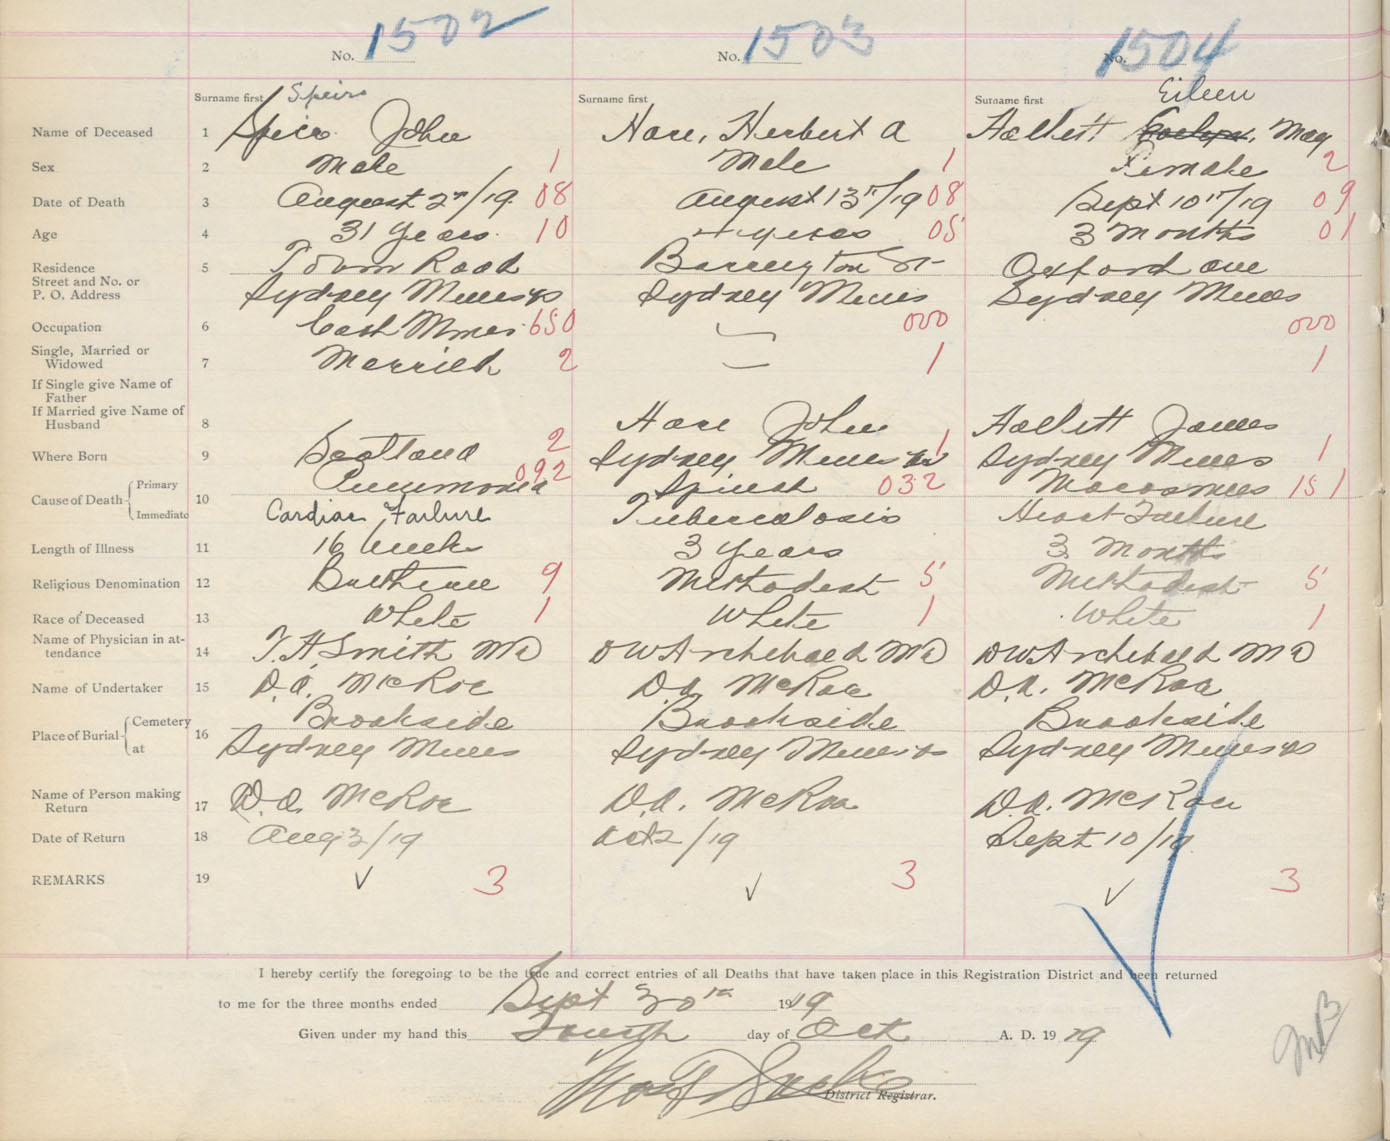 No. 1502 No. 1503 No. 1504
Speirs Eileen
Surname first Surname first Surname first
Name of Deceased 1 Speirs John Hare, Herbert A Hallett Evelyn, May
Sex 2 Male 1 Male 1 Female 2
Date of Death 3 August 2nd/19 08 August 13th/19 08 Sept 10th/19 09
Age 4 31 Years 10 4 years 05 3 Months 01
Residence 5 Town Road Barrington St Oxford ave
Street and No. or
P. O. Address Sydney Mines NS Sydney Mines Sydney Mines
Occupation 6 Coal Miner 650 000 000
Single, Married or
Widowed 7 Married 2 1 1
If Single give Name of
Father
If Married give Name of
Husband 8 Hare John Hallett James
Where Born 9 Scotland 2 Sydney Mines NS 1 Sydney Mines 1
Cause of Death Primary 10 Pneumonia 092 Spinal 032 Marasmus 151
Immediate Cardiac Failure Tuberculosis Heart Failure
Length of Illness 11 16 Weeks 3 Years 3 Months
Religious Denomination 12 9 Methodist 5 Methodist 5
Race of Deceased 13 White 1 White 1 White 1
Name of Physician in at-
tendance 14 T. H. Smith MD DW Archibald MD DW Archibald MD
Name of Undertaker 15 D.A. McRae D.A. McRae D.A. McRae
Place of Burial Cemetery 16 Brookside Brookside Brookside
at Sydney Mines Sydney Mines NS Sydney Mines NS
Name of Person making
Return 17 D.A. McRae D.A. McRae D.A. McRae
Date of Return 18 Aug 3/19 Oct 2/19 Sept 10/19
REMARKS 19 ✓ 3 ✓ 3 ✓ 3
I hereby certify the foregoing to be the true and correct entries of all Deaths that have taken place in this Registration District and been returned
to me for the three months ended Sept 30th 1919
Given under my hand this Fourth day of Oct A. D. 19 19
District Registrar.